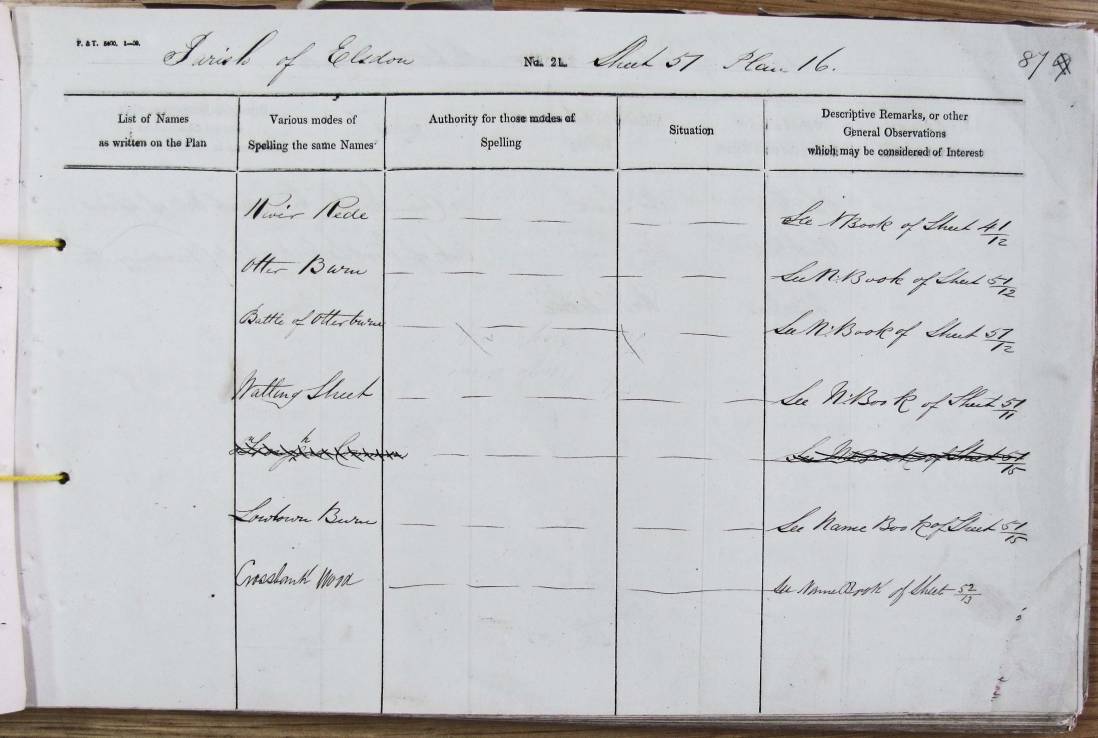 P. & T. 5400. 1—09.
Parish of Elsdon No. 21. Sheet 51 Plan 16. 87
List of Names
as written on the Plan
Various modes of
Spelling the same Names
Authority for those modes of
Spelling
Situation
Descriptive Remarks, or other
General Observations
which may be considered of Interest
River Rede — — — — — — See N Book of Sheet 41/12
Otter Burn — — — — — — See N. Book of Sheet 51/12
Battle of Otterburn — — — — See N. Book of Sheet 51/12
Watling Street — — — — — — See N. Book of Sheet 51/11
See N. Book of Sheet 51/15
Lowtown Burn — — — — — — See Name Book of Sheet 51/15
Crossbank Wood — — — — See Name Book of Sheet 52/13